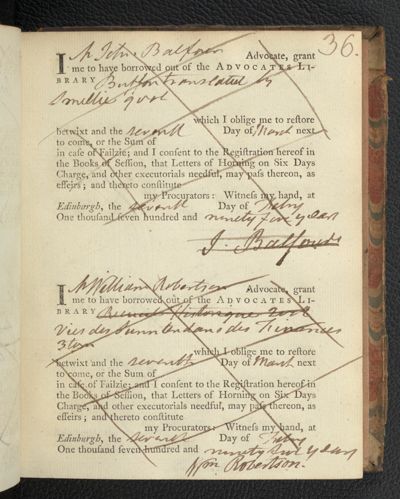 36.
I Mr John Balfour Advocate, grant
me to have borrowed out of the ADVOCATES LI-
BRARY Buffon translated by
Smellie 9 vol
which I oblige me to restore
betwixt and the seventh Day of March next
to come, or the Sum of
in case of Failzie; and I consent to the Registration hereof in
the Books of Session, that Letters of Horning on Six Days
Charge, and other executorials needful, may pass thereon, as
effeirs; and thereto constitute
my Procurators: Witness my hand, at
Edinburgh, the seventh Day of Febry
One thousand seven hundred and ninety five years
J. Balfour
I Mr William Robertson Advocate, grant
me to have borrowed out of the ADVOCATES LI-
BRARY Recueil Historique 2 vol
Vies des Surintendans des Finances
3 tom
which I oblige me to restore
betwixt and the seventh Day of March next
to come, or the Sum of
in case of Failzie; and I consent to the Registration hereof in
the Books of Session, that Letters of Horning on Six Days
Charge, and other executorials needful, may pass thereon, as
effeirs; and thereto constitute
my Procurators: Witness my hand, at
Edinburgh, the seventh Day of Febry
One thousand seven hundred and ninety five years
Wm. Robertson.